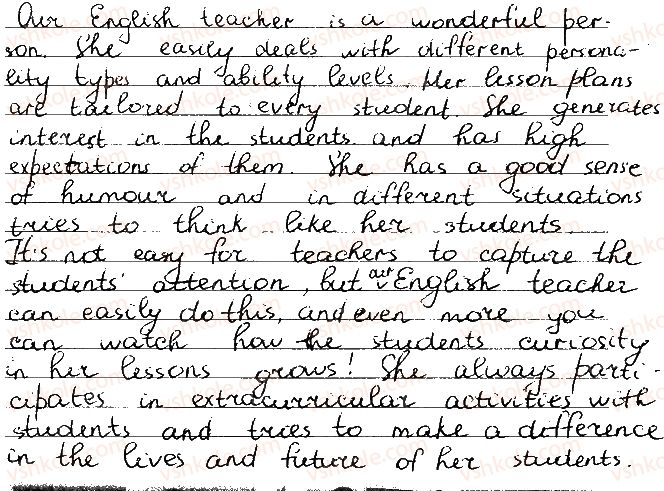 Our English teacher is a wonderful per-
son. She easily deals with different persona-
lity types and ability levels. Her lesson plans
are tailored to every student. She generates
interest in the students and has high
expectations of them. She has a good sense
of humour and in different situations
tries to think like her students.
It's not easy for teachers to capture the
students' attention, but our English teacher
can easily do this, and even more you
can watch how the students curiosity
in her lessons grows! She always parti-
cipates in extracurricular activities with
students and tries to make a difference
in the lives and future of her students.